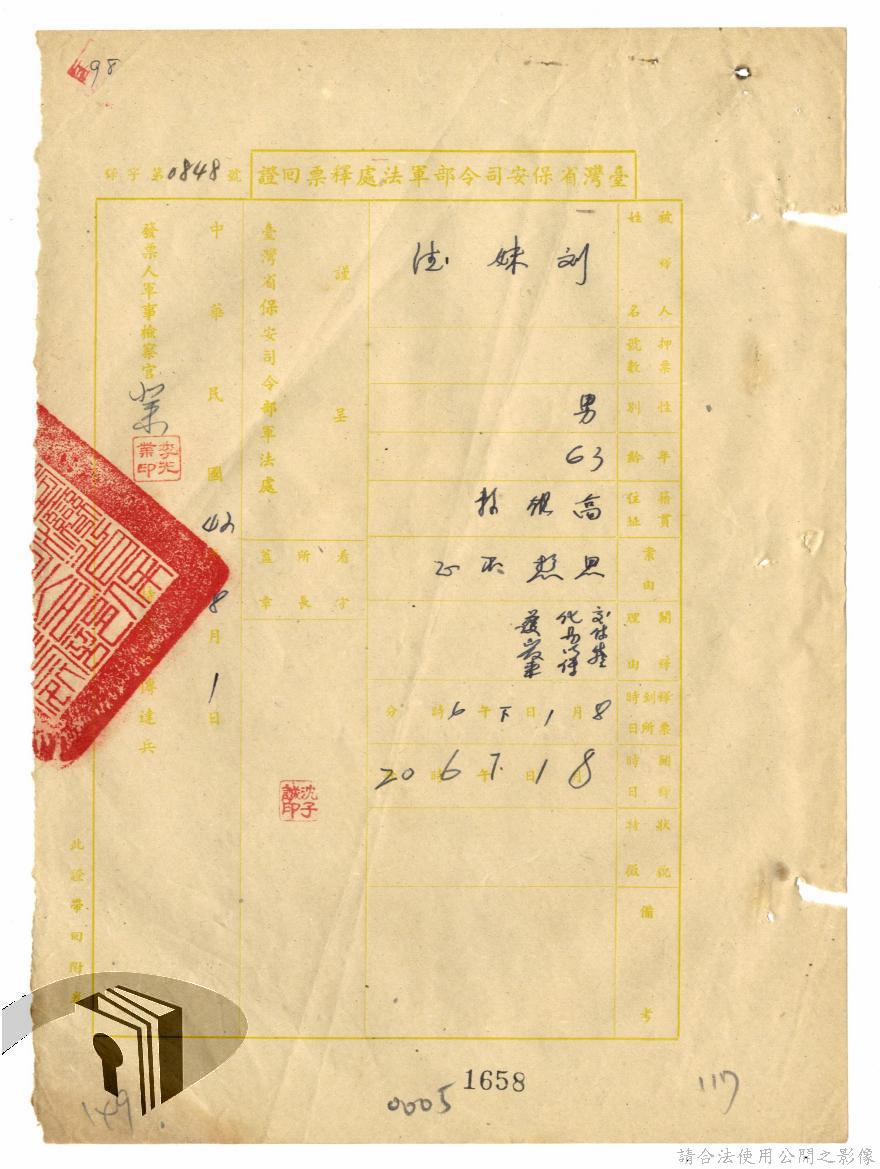 98
臺灣省保安司令部軍法處釋票回證
釋字第0848號
被釋人姓名
刘妹德
押票號數
性別
男
年齡
63
籍貫住址
高雄
案由
思想不正
開釋理由
釋票到所時日
8月1日下午6時 分
開釋時日
8 1 下 6 20
狀況特徵
備考
謹呈
臺灣省保安司令部軍法處
看守所長蓋章
沈子誠印
中華民國42年8月1日
發票人軍事檢察官
李光業印
傅達兵
此證帶回附卷
1658
0005
117
149
請合法使用公開之影像